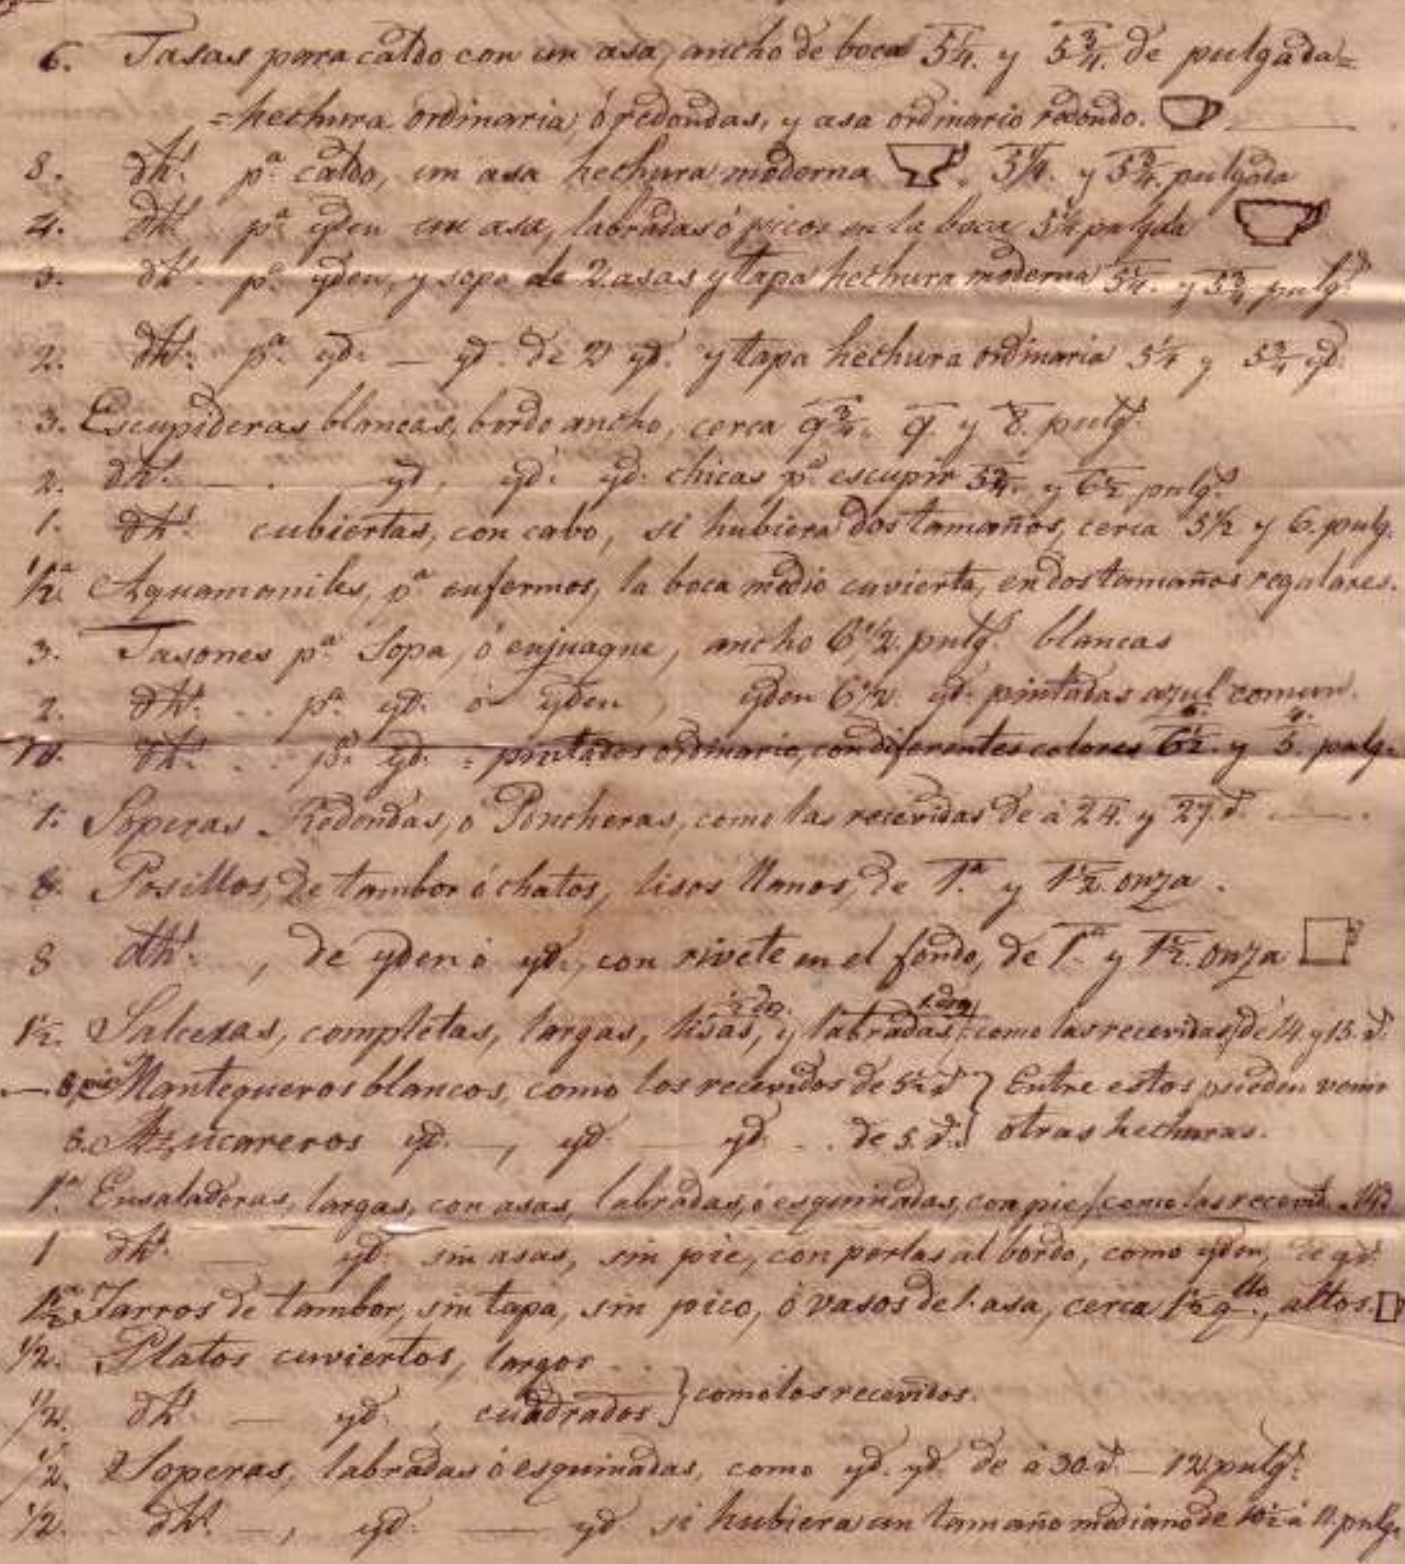 6. Tasas para caldo con un asa, ancho de boca 5¼. y 5¾. de pulgada=
=hechura ordinaria, ó redondas, y asa ordinario redondo.
8. dhs. pa. caldo, un asa hechura moderna 5¼. y 5¾. pulgada
4. dhs pa. yden un asa, labradas ó picos en la boca 5¼ pulgada
3. dhs. pa. yden, y sopa de 2 asas y tapa hechura moderna 5¼. y 5¾. pulgs.
2. dhs. pa. yd. — yd. de 2 yd. y tapa hechura ordinaria 5¼ y 5¾ yd.
3. Escupideras blancas, bordo ancho, cerca 9¾. 9. y 8. pulgs.
2. dhs. — . yd, yd. yd. chicas pa. escupir 5¾. y 6½ pulgs.
1. dhs. cubiertas, con cabo, si hubiera dos tamaños, cerca 5½ y 6. pulg.
½a Aguamaniles, pa. enfermos, la boca medio cuvierta, en dos tamaños regulares.
3. Tasones pa. Sopa, ó enjuague, ancho 6½. pulgs. blancas
2. dhs. .. pa. yd. ó yden, yden 6½. yd. pintadas azul comun.
10. dhs. .. pa. yd. = pintados ordinario, con diferentes colores 6½. y 5. pulg.
1. Soperas Redondas, ó Poncheras, como las recevidas de á 24. y 27.
8. Posillos, de tambor ó chatos, lisos llanos, de 1.a y 1½. onza.
8 dhs., de yden ó yd., con rivete en el fondo, de 1.a y 1½. onza
1½. Salceras, completas, largas, lisas, ½ do. y labradas, 1. don como las recevidas, de 14. y 15.
— 8, pie Mantequeros blancos, como los recevidos de 5½ } Entre estos pueden venir
8. Azucareros yd. —, yd — yd .. de 5. } otras hechuras.
1a. Ensaladeras, largas, con asas, labradas, ó esquinadas, con pie / como las recevid.
1 dhs. — yd. sin asas, sin pie, con perlas al bordo, como yden, de
Jarros de tambor, sin tapa, sin pico, ó vasos de 1. asa, cerca 1½ qllo, altos.
½. Platos cuviertos, largos ...
½. dhs. — yd., cuadrados } como los recevidos.
½. Soperas, labradas ó esquinadas, como yd. yd. de á 30. — 12 pulgs.
½. dhs. —, yd. — yd si hubiera un tamaño mediano de 10½ á 11. pulgs.